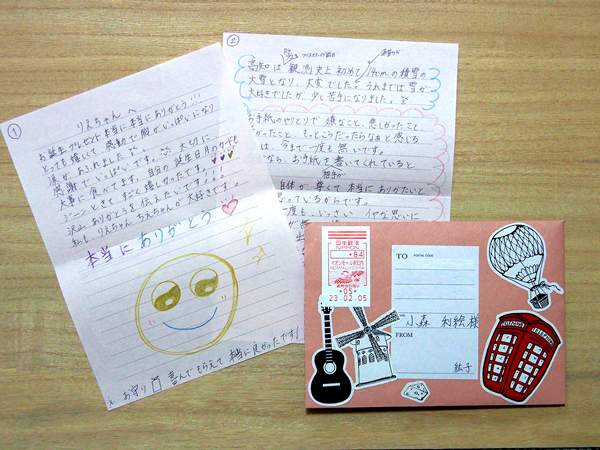 ①
りえちゃんへ
お誕生プレゼント本当に本当にありがとう!!!
とっても嬉しくて感動で胸がいっぱいになり
涙があふれました
感謝でいっぱいです。大切に
大事に食べてます。自分の誕生日月のカードも
ジーンときて、すごく嬉しかったです。
沢山ありがとうを伝えたいです!!!
私もりえちゃん ちえちゃんが大好きです。
本当にありがとう
お守り 喜んでもらえて本当に良かったです!
②
高知は観測史上初めて14cmの積雪の
大雪となり、大変でした。それまでは雪が
大好きでしたが少し苦手になりました。
お手紙のやりとりで嫌なこと、悲しかったこと、
かったこと、もっとこうだったらなぁと感じる
は、今まで一度も無いです。
なら、お手紙を書いてくれていると
相手が
自体が尊くて本当にありがたいと
なっているからです。
一度も、いっさいイヤな思いに
日本郵便
NIPPON
84
イオンモール高知内
05
23.02.05
TO
POSTAL CODE
小森 利絵 様
FROM
紘子
TELEPHONE
TELEPHONE